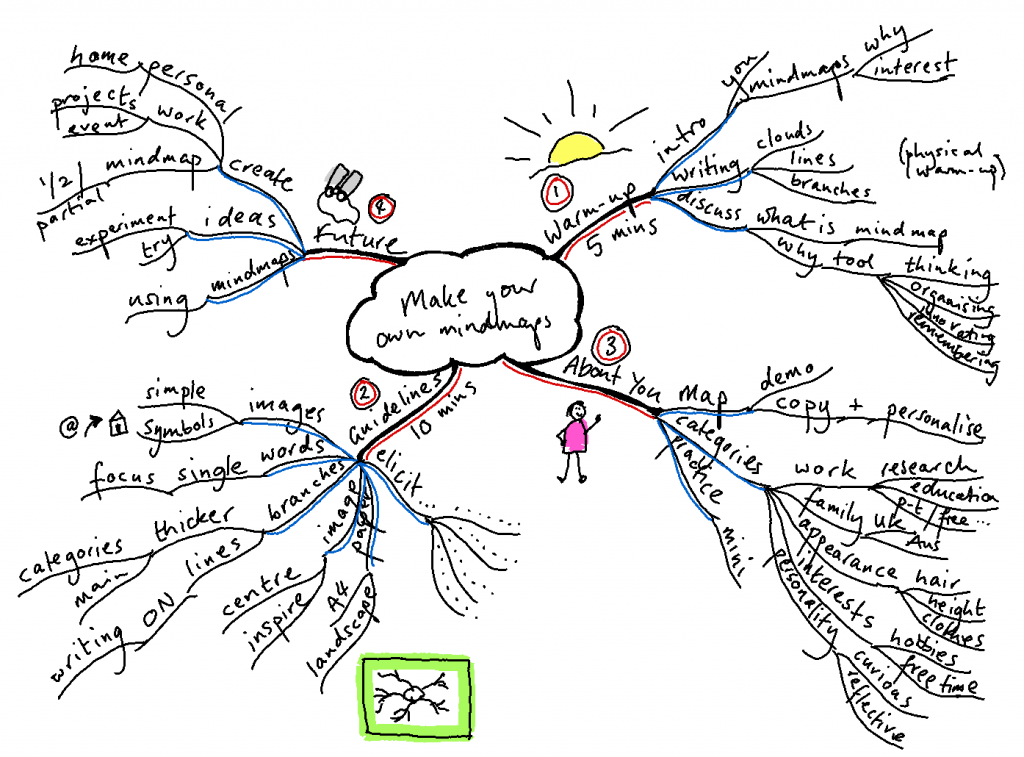 Make your
own mindmaps
1
Warm-up
5 mins
intro
you
mindmaps
why
interest
writing
clouds
lines
branches
(physical
warm-up)
discuss
what is mindmap
why tool
thinking
organising
innovating
remembering
2
Guidelines
10 mins
images
simple
symbols
@
words
single
focus
branches
thicker
categories
main
lines
ON
writing
image
centre
inspire
paper
A4
landscape
elicit
3
About You
Map
demo
copy + personalise
categories
work
research
education
p-t / free...
family
UK
Aus
appearance
hair
height
clothes
interests
hobbies
free time
personality
curious
reflective
practice
mini
4
Future
create
personal
home
work
projects
event
mindmap
1/2
partial
ideas
experiment
try
mindmaps
using